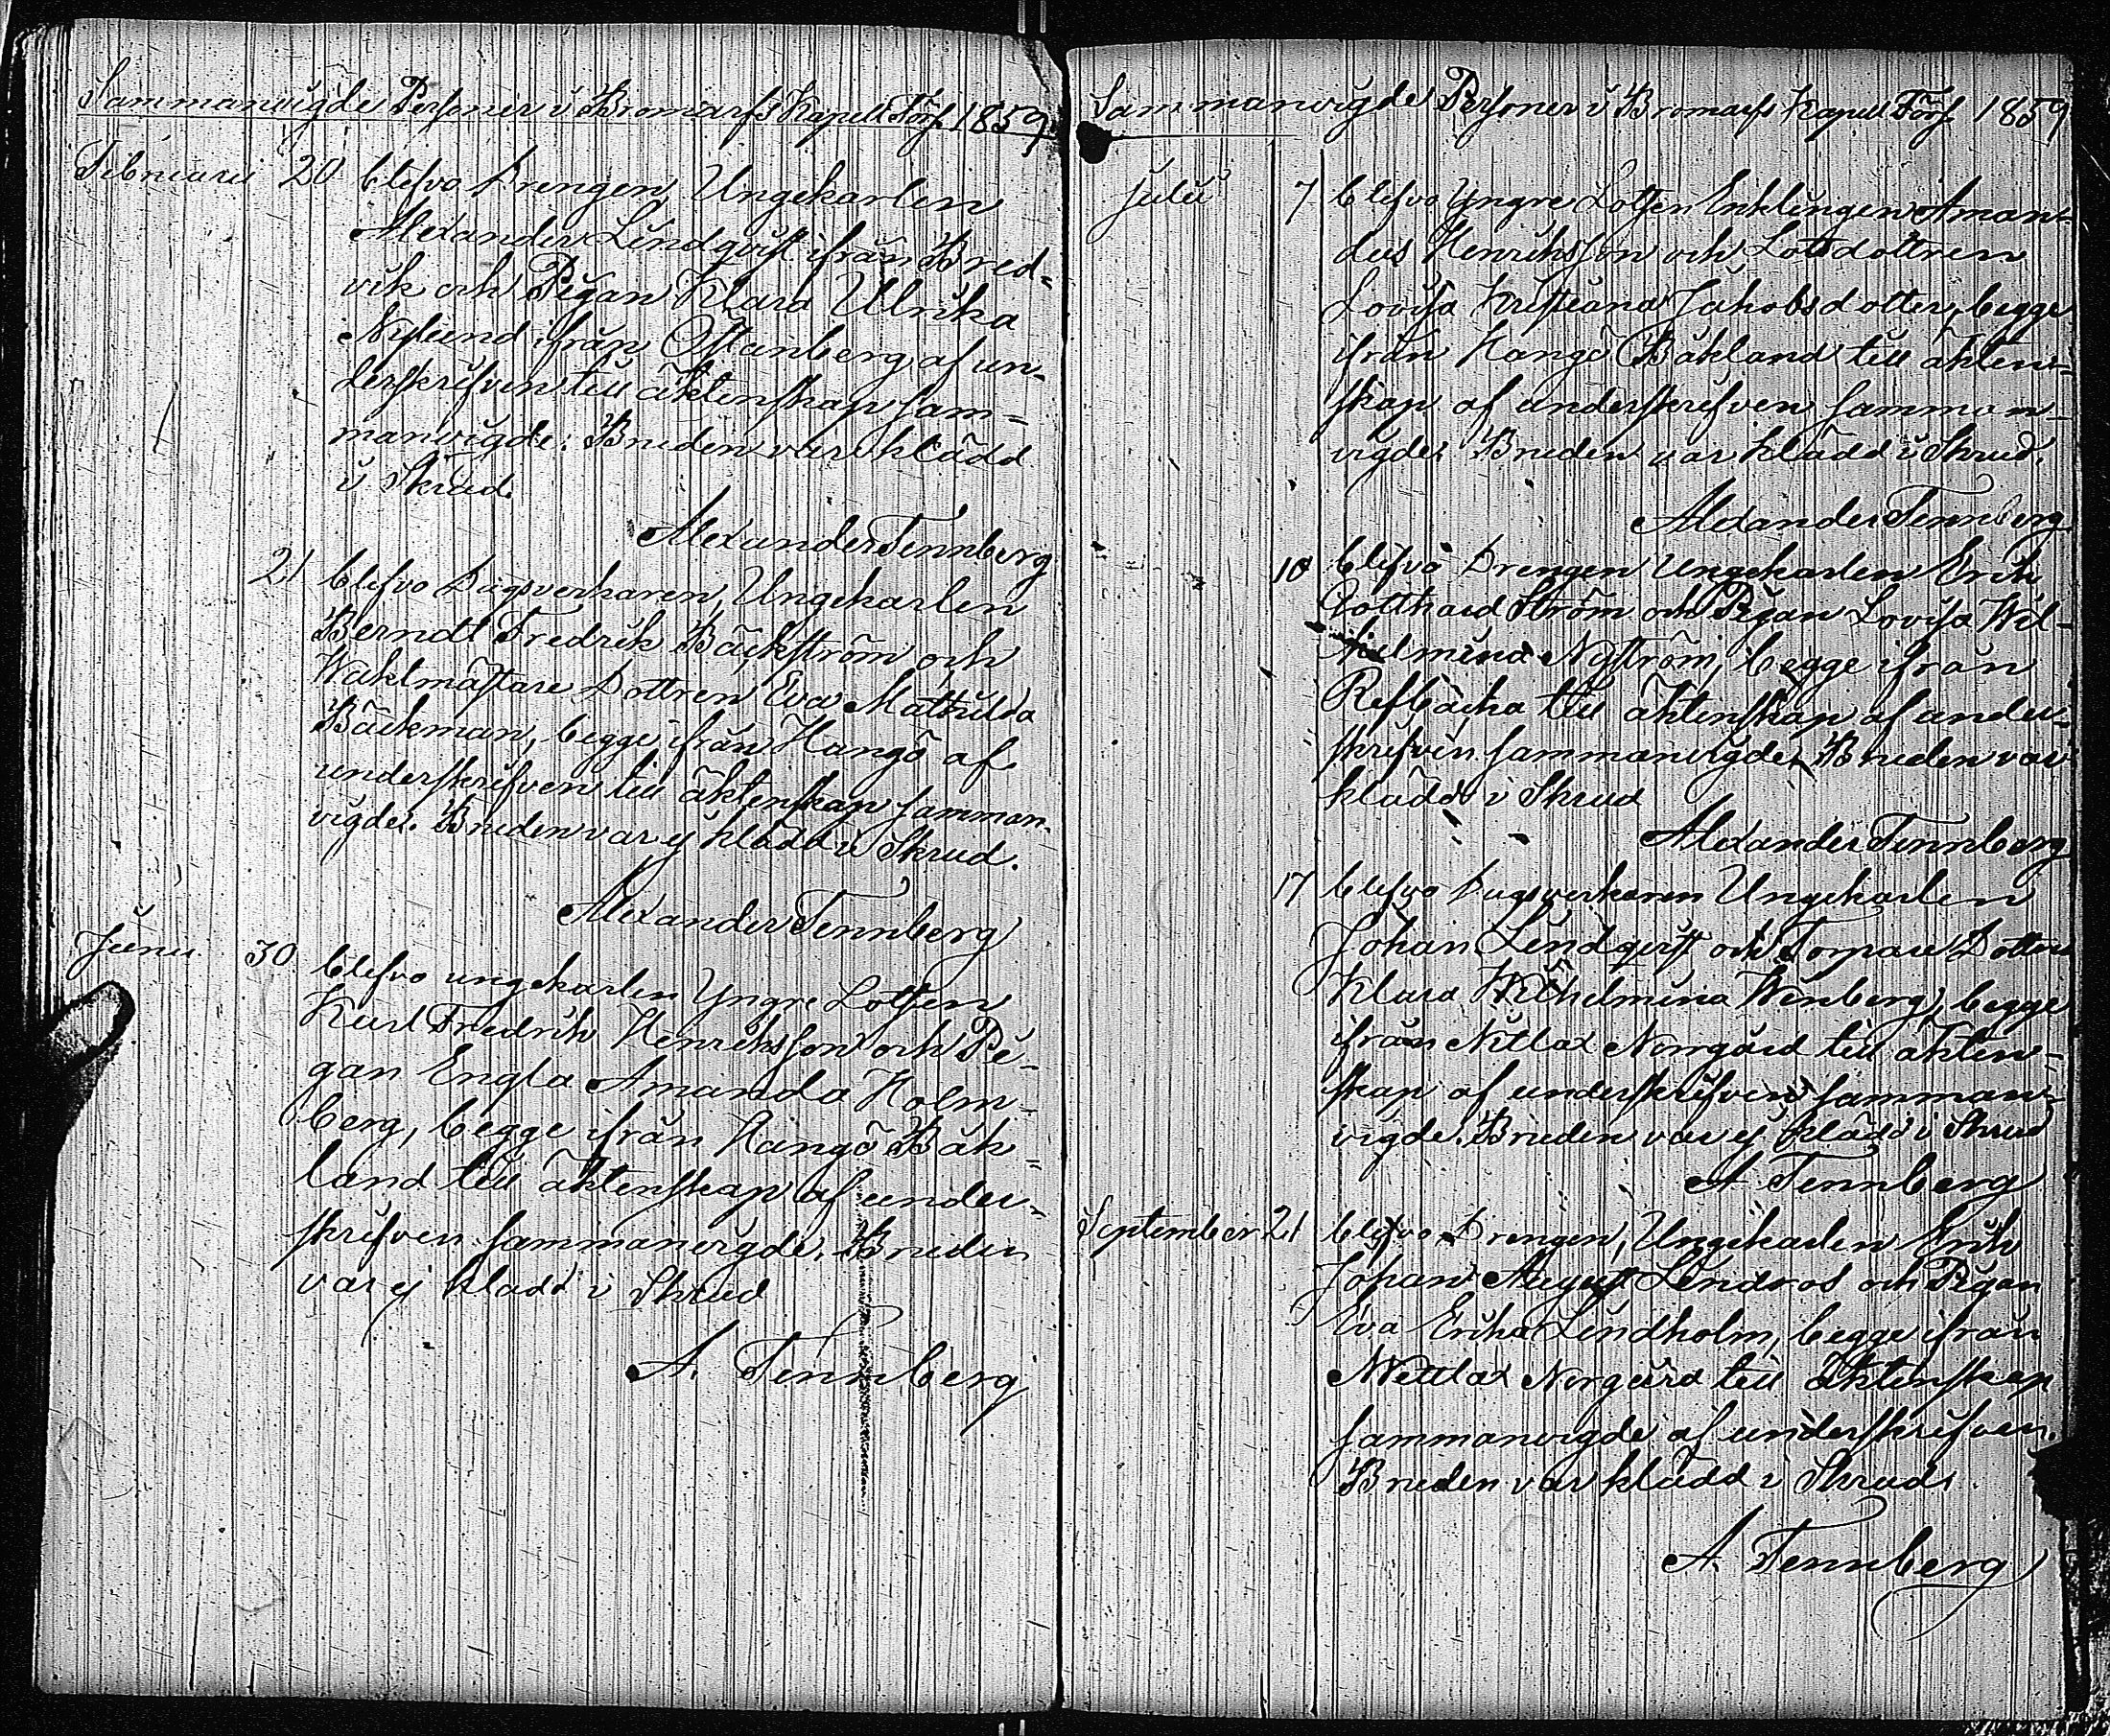 Sammanvigde Personer i Bromarfs Kapell Förs. 1859
Februari 20 blefvo Drengen Ungekarlen
Alexander Lindqvist ifrån Bred-
vik och Pigan Klara Ulrika
Nylund ifrån Östanberg af un-
derskrifven till äktenskap sam-
manvigde. Bruden var klädd
i Skrud.
Alexander Tennberg
21 blefvo Dagsverkaren, Ungekarlen
Berndt Fredrik Bäckström och
Waktmästare Dottren Eva Mathilda
Bäckman, begge ifrån Hangö af
underskrifven till äktenskap samman-
vigde. Bruden var ej klädd i Skrud.
Alexander Tennberg
Junii 30 blefvo ungekarlen Yngre Lotsen
Karl Fredrik Henriksson och Pi-
gan Engla Amanda Holm-
berg, begge ifrån Hangö Bäk-
land till äktenskap af under-
skrifven sammanvigde, Bruden
var ej klädd i Skrud
A. Tennberg
Sammanvigde Personer i Bromarfs Kapell Förs. 1859
Julii 7 blefvo Yngre Lotsen Enklingen Aman-
dus Henriksson och Lotsdottren
Lovisa Kristiana Jakobsdotter, begge
ifrån Hangö Bäkland till äkten-
skap af underskrifven samman-
vigde. Bruden var klädd i Skrud.
Alexander Tennberg
10 blefvo Drengen Ungekarlen Erik
Gotthard Ström och Pigan Lovisa Wil-
helmina Nyström, begge ifrån
Refbacka till äktenskap af under-
skrifven sammanvigde. Bruden var
klädd i Skrud
Alexander Tennberg
17 blefvo Dagsverkaren Ungekarlen
Johan Lindqvist och Torpare Dottren
Klara Wilhelmina Winberg, begge
ifrån Nitlax Norrgård till äkten-
skap af underskrifven samman-
vigde. Bruden var ej klädd i Skrud
A Tennberg
September 21 blefvo Drengen, Ungekarlen Erik
Johan August Lindros och Pigan
Eva Erika Lindholm, begge ifrån
Nittlax Norgård till äktenskap
sammanvigde af underskrifven.
Bruden var klädd i Skrud.
A. Tennberg